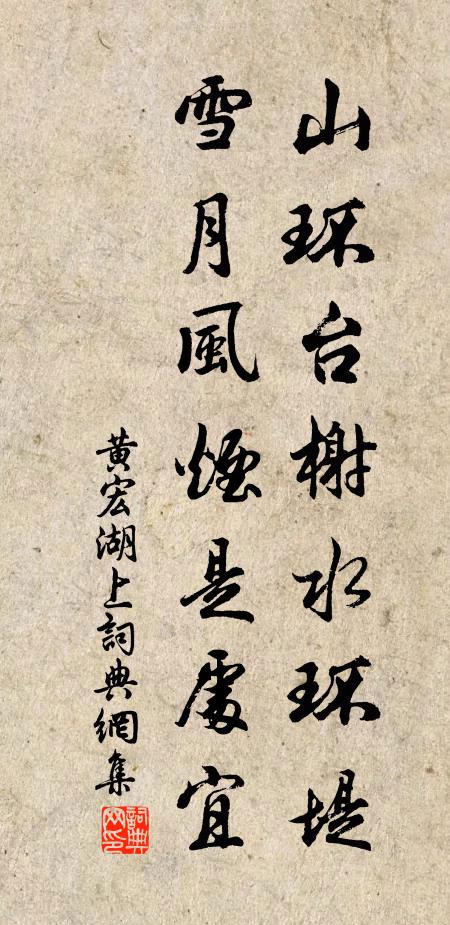 山环台榭水环堤
雪月風煙是處宜
黄宏湖上詞典網集
詞典网印